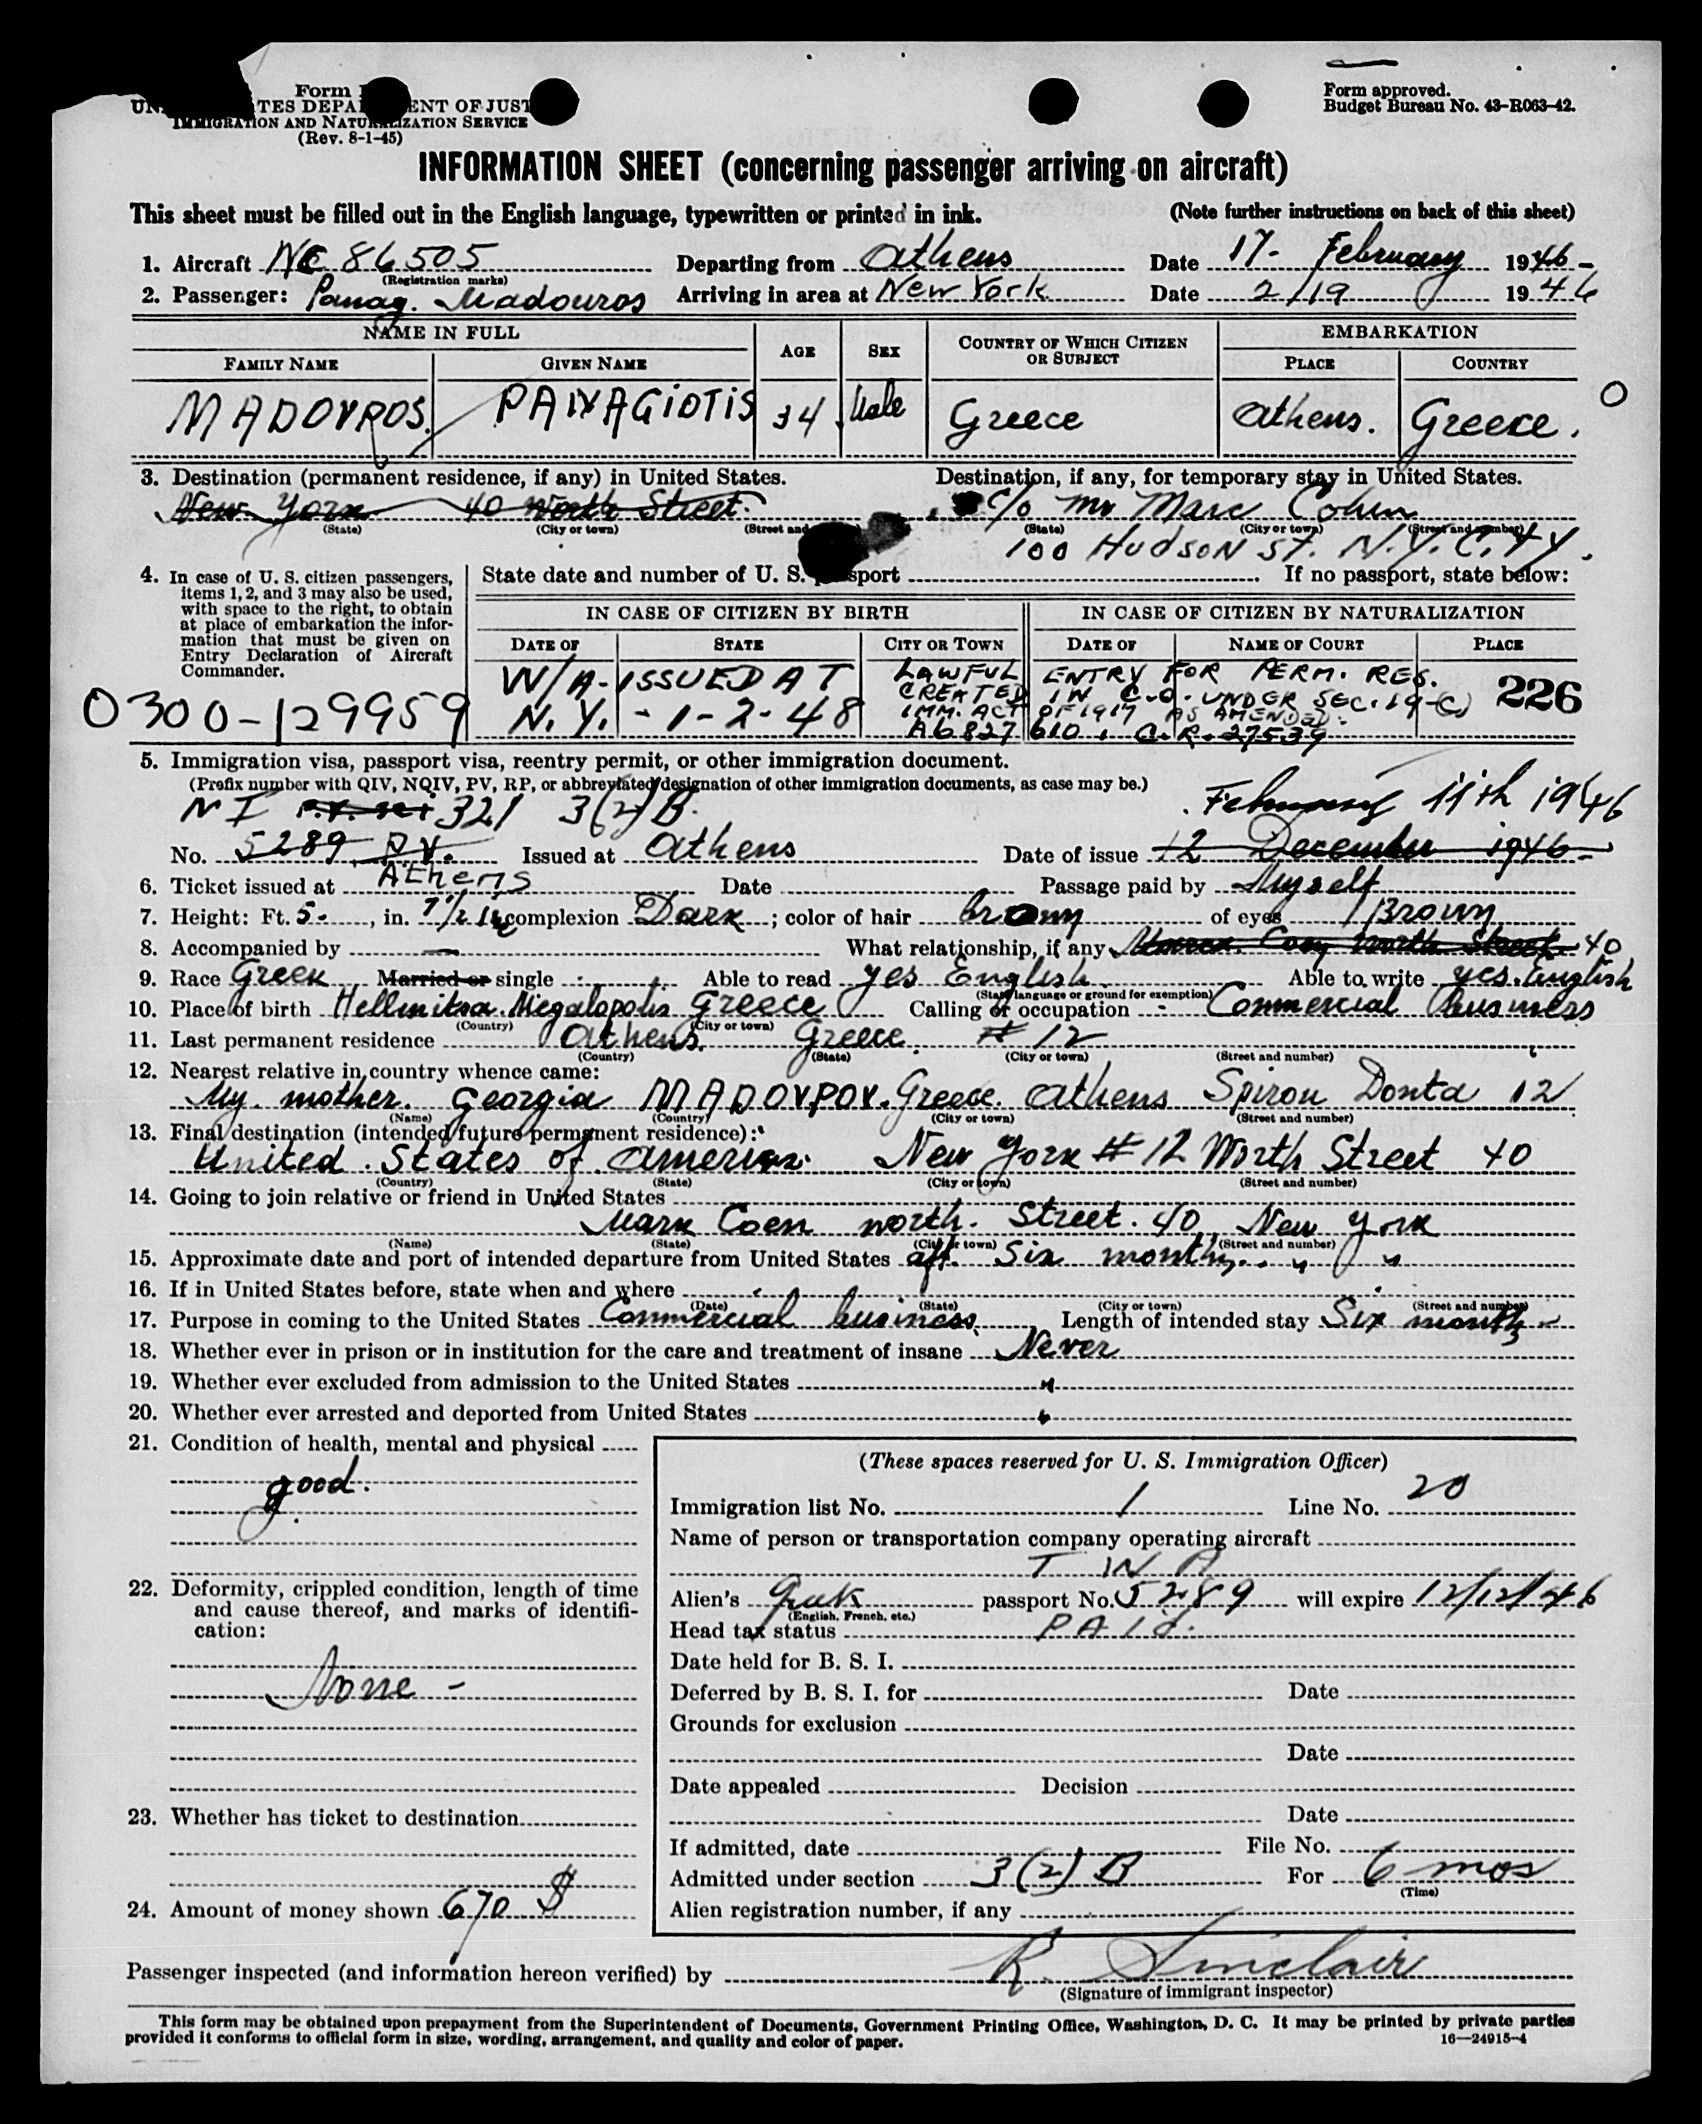 Form
UN TES DEPA ENT OF JUST
IMMIGRATION AND NATURALIZATION SERVICE
(Rev. 8-1-45)
Form approved.
Budget Bureau No. 43-R063-42.
INFORMATION SHEET (concerning passenger arriving on aircraft)
This sheet must be filled out in the English language, typewritten or printed in ink. (Note further instructions on back of this sheet)
1. Aircraft NC 86505 Departing from Athens Date 17- February 1946-
(Registration marks)
2. Passenger: Panag. Madouros Arriving in area at New York Date 2/19 1946
NAME IN FULL AGE SEX COUNTRY OF WHICH CITIZEN OR SUBJECT EMBARKATION
FAMILY NAME GIVEN NAME PLACE COUNTRY
MADOVROS. PANAGIOTIS 34 Male Greece Athens. Greece. O
3. Destination (permanent residence, if any) in United States. Destination, if any, for temporary stay in United States.
New York 40 Worth Street. c/o Mr Marc Cohen
(State) (City or town) (Street and (State) (City or town) (Street and number)
100 HUDSON ST. N.Y.C. N.Y.
4. In case of U. S. citizen passengers, items 1, 2, and 3 may also be used, with space to the right, to obtain at place of embarkation the information that must be given on Entry Declaration of Aircraft Commander.
State date and number of U. S. passport If no passport, state below:
IN CASE OF CITIZEN BY BIRTH IN CASE OF CITIZEN BY NATURALIZATION
DATE OF STATE CITY OR TOWN DATE OF NAME OF COURT PLACE
W/A- ISSUED AT LAWFUL ENTRY FOR PERM. RES.
CREATED IN C.O. UNDER SEC. 19-(C) 226
0300-129959 N.Y. -1-2-48 IMM. ACT OF 1917 AS AMENDED.
A6827610. C.R. 27539
5. Immigration visa, passport visa, reentry permit, or other immigration document.
(Prefix number with QIV, NQIV, PV, RP, or abbreviated designation of other immigration documents, as case may be.)
NI 321 3(2)B. February 11th 1946
No. 5289 P.V. Issued at Athens Date of issue 12 December 1946-
6. Ticket issued at AThens Date Passage paid by Myself
7. Height: Ft. 5- , in. 7 1/2 complexion Dark ; color of hair brown of eyes Brown
8. Accompanied by — What relationship, if any 40
9. Race Greek Married or single Able to read yes English Able to write yes. English
(State language or ground for exemption)
10. Place of birth Hellinitsa. Megalopolis Greece Calling or occupation - Commercial business
(Country) (City or town)
11. Last permanent residence Athens. Greece. # 12
(Country) (State) (City or town) (Street and number)
12. Nearest relative in country whence came:
My mother. Georgia MADOVROV. Greece. Athens Spirou Donta 12
(Name) (Country) (City or town) (Street and number)
13. Final destination (intended future permanent residence):
United States of America. New York # 12 Worth Street 40
(Country) (State) (City or town) (Street and number)
14. Going to join relative or friend in United States
Mark Coen north. Street. 40 New York
(Name) (State) (City or town) (Street and number)
15. Approximate date and port of intended departure from United States aft. Six months. " "
16. If in United States before, state when and where
(Date) (State) (City or town) (Street and number)
17. Purpose in coming to the United States Commercial business Length of intended stay Six months -
18. Whether ever in prison or in institution for the care and treatment of insane Never
19. Whether ever excluded from admission to the United States "
20. Whether ever arrested and deported from United States "
21. Condition of health, mental and physical
good.
22. Deformity, crippled condition, length of time and cause thereof, and marks of identification:
None -
23. Whether has ticket to destination
24. Amount of money shown 670 $
(These spaces reserved for U. S. Immigration Officer)
Immigration list No. 1 Line No. 20
Name of person or transportation company operating aircraft
T W A
Alien's Greek passport No. 5289 will expire 12/12/46
(English, French, etc.)
Head tax status PAid.
Date held for B. S. I.
Deferred by B. S. I. for Date
Grounds for exclusion
Date
Date appealed Decision
Date
If admitted, date File No.
Admitted under section 3(2)B For 6 mos
(Time)
Alien registration number, if any
Passenger inspected (and information hereon verified) by R. Sinclair
(Signature of immigrant inspector)
This form may be obtained upon prepayment from the Superintendent of Documents, Government Printing Office, Washington, D. C. It may be printed by private parties
provided it conforms to official form in size, wording, arrangement, and quality and color of paper. 16—24915-4